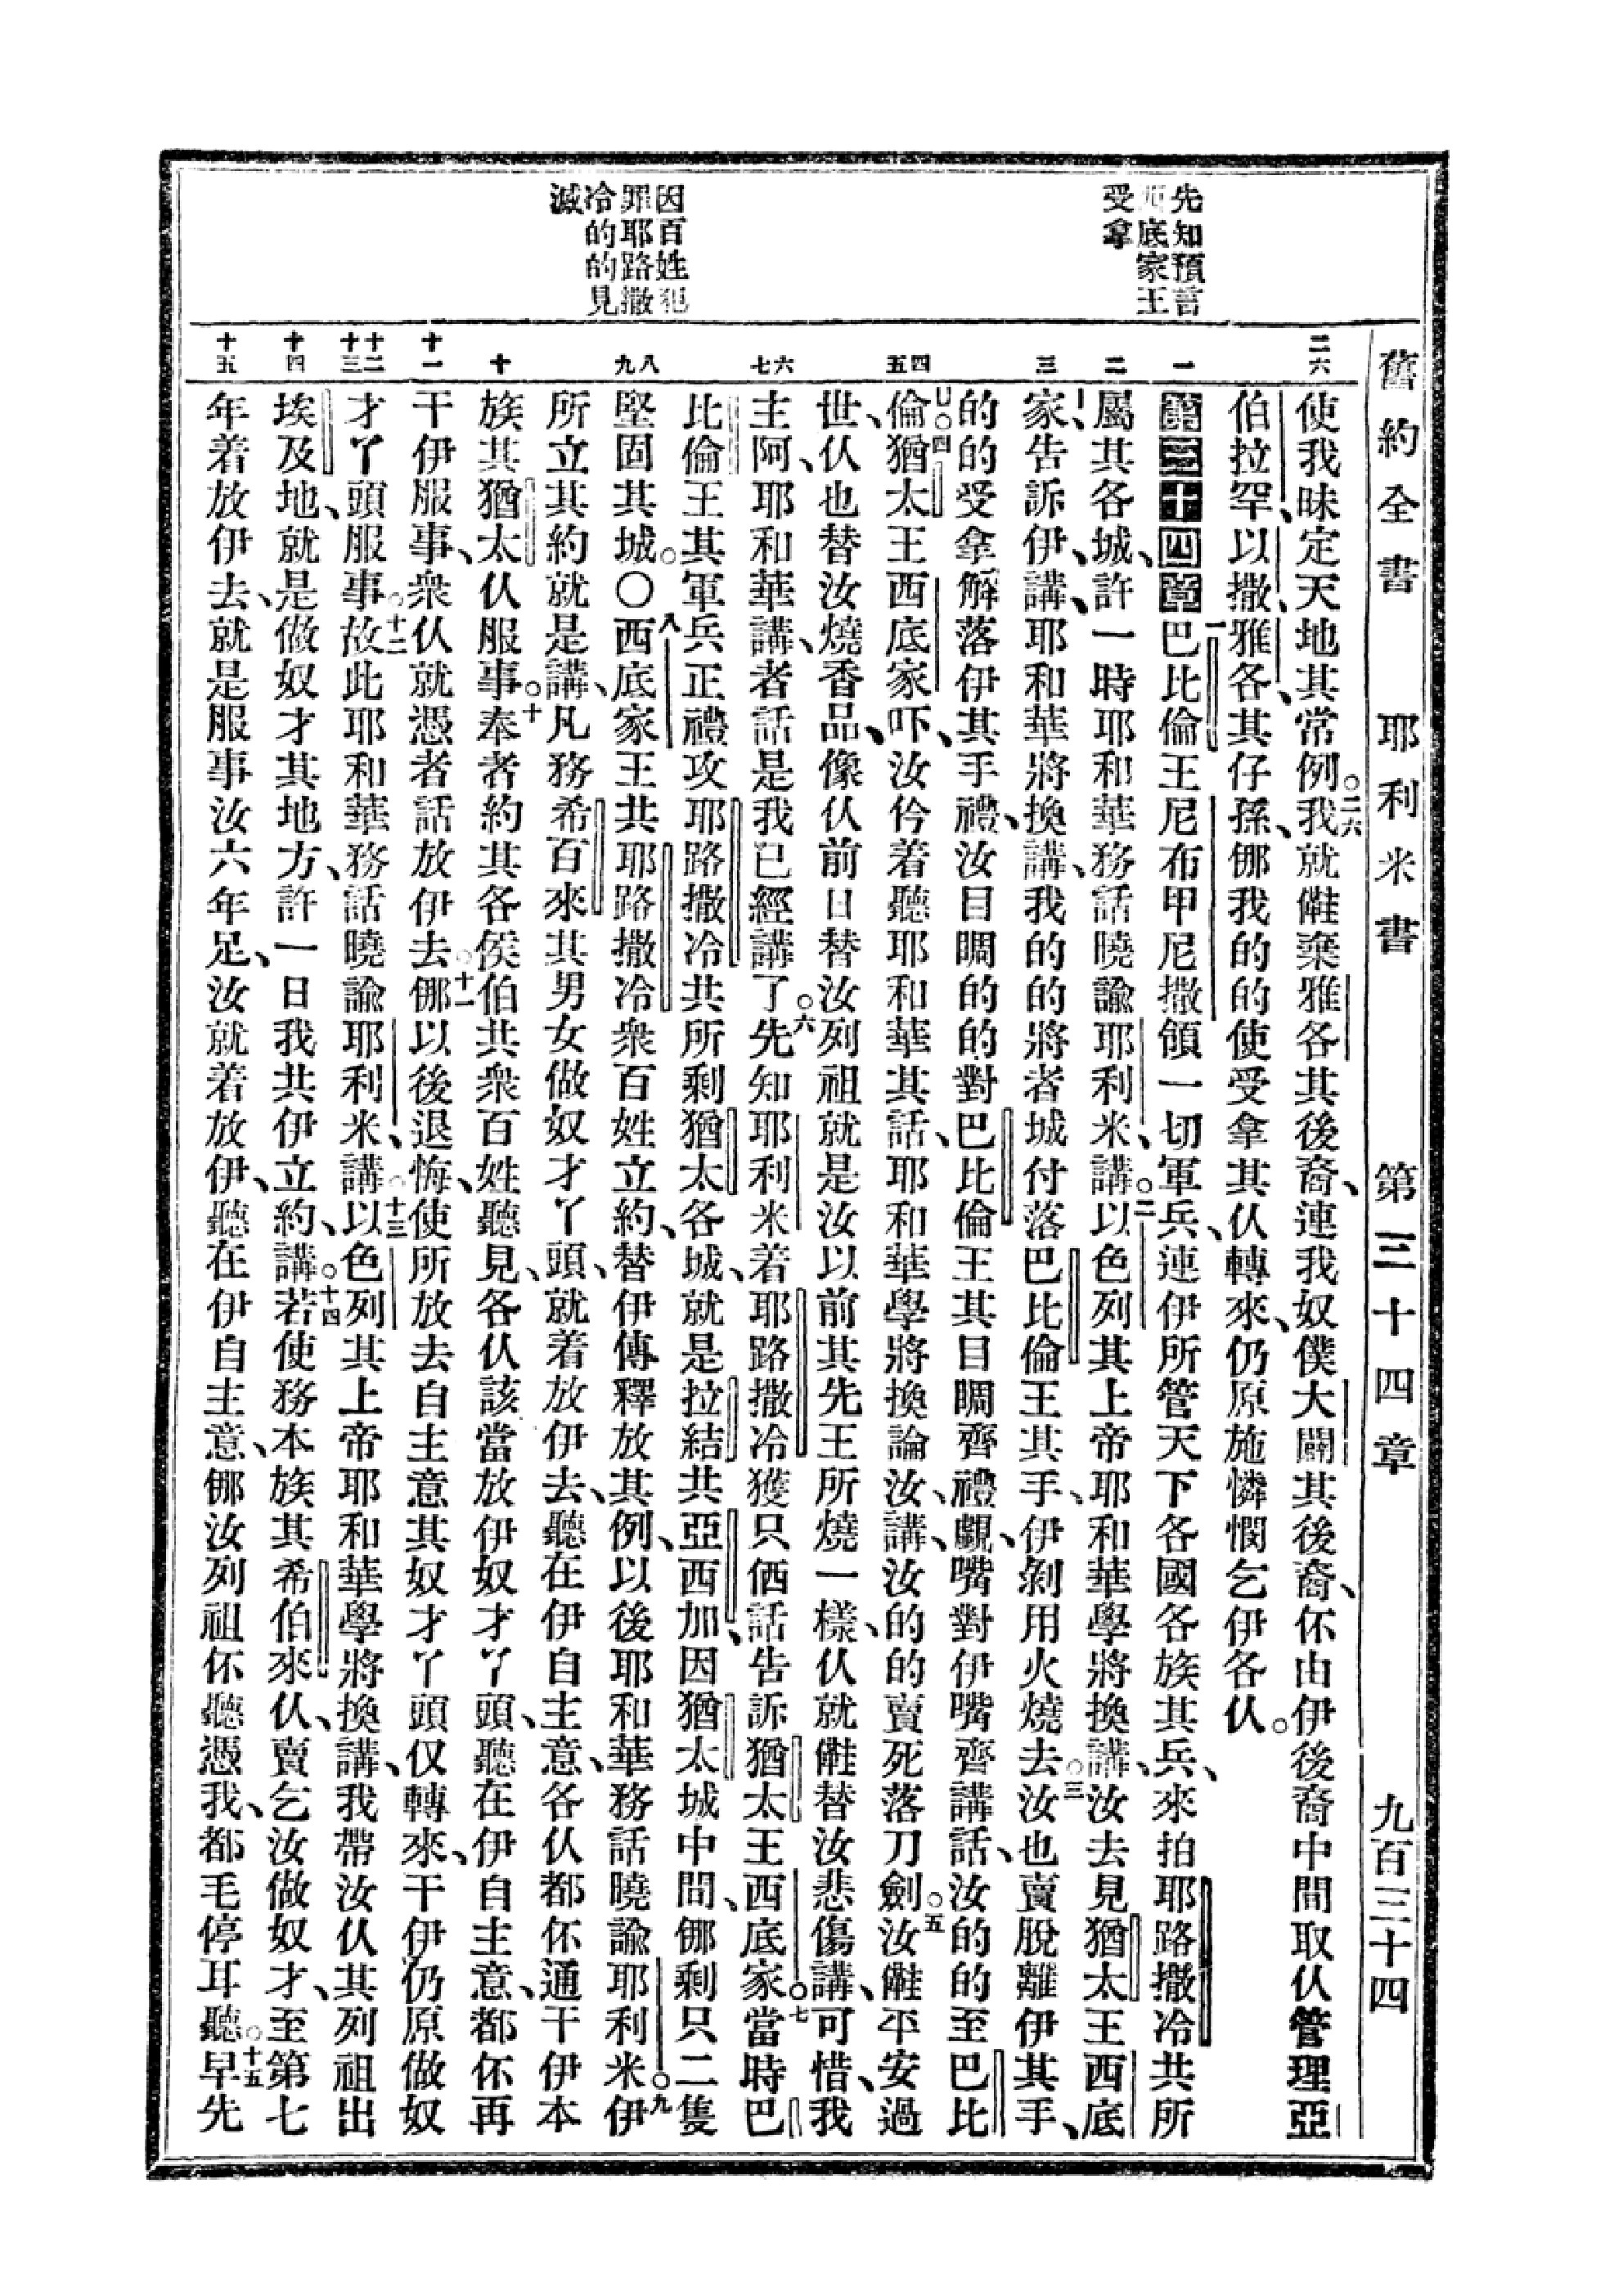 舊約全書 耶利米書 第三十四章 九百三十四
先知預言
西底家王
受拿
因百姓犯
罪耶路撒
冷的的見
滅
二六
一
二
三
四 五
六 七
八 九
十
十一
十二 十三
十四
十五
使我昧定天地其常例。二六我就儺棄雅各其後裔、連我奴僕大闢其後裔、伓由伊後裔中間取仈管理亞
伯拉罕、以撒、雅各、其仔孫、㑚我的的使受拿其仈轉來、仍原施憐憫乞伊各仈。
第三十四章一巴比倫王尼布甲尼撒領一切軍兵、連伊所管天下各國各族其兵、來拍耶路撒冷共所
屬其各城、許一時耶和華務話曉諭耶利米、講。二以色列其上帝耶和華學將換講、汝去見猶太王西底
家、告訴伊、講、耶和華將換講、我的的將者城付落巴比倫王其手、伊剝用火燒去。三汝也賣脫離伊其手、
的的受拿解落伊其手禮、汝目睭的的對巴比倫王其目睭齊禮、覷、嘴對伊嘴齊講話、汝的的至巴比
倫。四猶太王西底家吓、汝仱着聽耶和華其話、耶和華學將換論汝、講、汝的的賣死落刀劍。五汝儺平安過
世、仈也替汝燒香品、像仈前日替汝列祖就是汝以前其先王所燒一樣、仈就儺替汝悲傷、講、可惜、我
主阿、耶和華講、者話是我已經講了。六先知耶利米着耶路撒冷獲只倕話告訴猶太王西底家。七當時巴
比倫王其軍兵正禮攻耶路撒冷、共所剩猶太各城、就是拉結共亞西加、因猶太城中間、㑚剩只二隻
堅固其城。〇八西底家王共耶路撒冷衆百姓立約、替伊傳釋放其例、以後耶和華務話曉諭耶利米。九伊
所立其約就是講、凡務希百來其男女做奴才丫頭、就着放伊去、聽在伊自主意、各仈都伓通干伊本
族其猶太仈服事。十奉者約其各侯伯共衆百姓聽見、各仈該當放伊奴才丫頭、聽在伊自主意、都伓再
干伊服事、衆仈就憑者話放伊去。十一㑚以後退悔、使所放去自主意其奴才丫頭仅轉來、干伊仍原做奴
才丫頭服事。十二故此耶和華務話曉諭耶利米、講。十三以色列其上帝耶和華學將換講、我帶汝仈其列祖出
埃及地、就是做奴才其地方、許一日我共伊立約、講。十四若使務本族其希伯來仈、賣乞汝做奴才、至第七
年着放伊去、就是服事汝六年足、汝就着放伊、聽在伊自主意、㑚汝列祖伓聽憑我、都毛停耳聽。十五早先